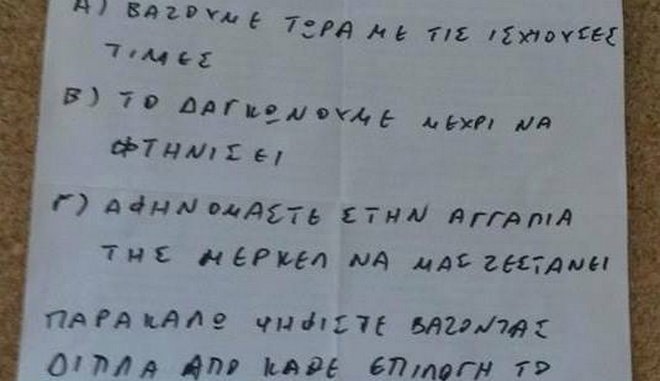 Α) ΒΑΖΟΥΜΕ ΤΩΡΑ ΜΕ ΤΙΣ ΙΣΧΙΟΥΣΕΣ
ΤΙΜΕΣ
Β) ΤΟ ΔΑΓΚΩΝΟΥΜΕ ΜΕΧΡΙ ΝΑ
ΦΤΗΝΙΣΕΙ
Γ) ΑΦΗΝΟΜΑΣΤΕ ΣΤΗΝ ΑΓΓΑΠΙΑ
ΤΗΣ ΜΕΡΚΕΛ ΝΑ ΜΑΣ ΖΕΣΤΑΝΕΙ
ΠΑΡΑΚΑΛΩ ΨΗΦΙΣΤΕ ΒΑΖΟΝΤΑΣ
ΔΙΠΛΑ ΑΠΟ ΚΑΘΕ ΕΠΙΛΟΓΗ ΤΟ